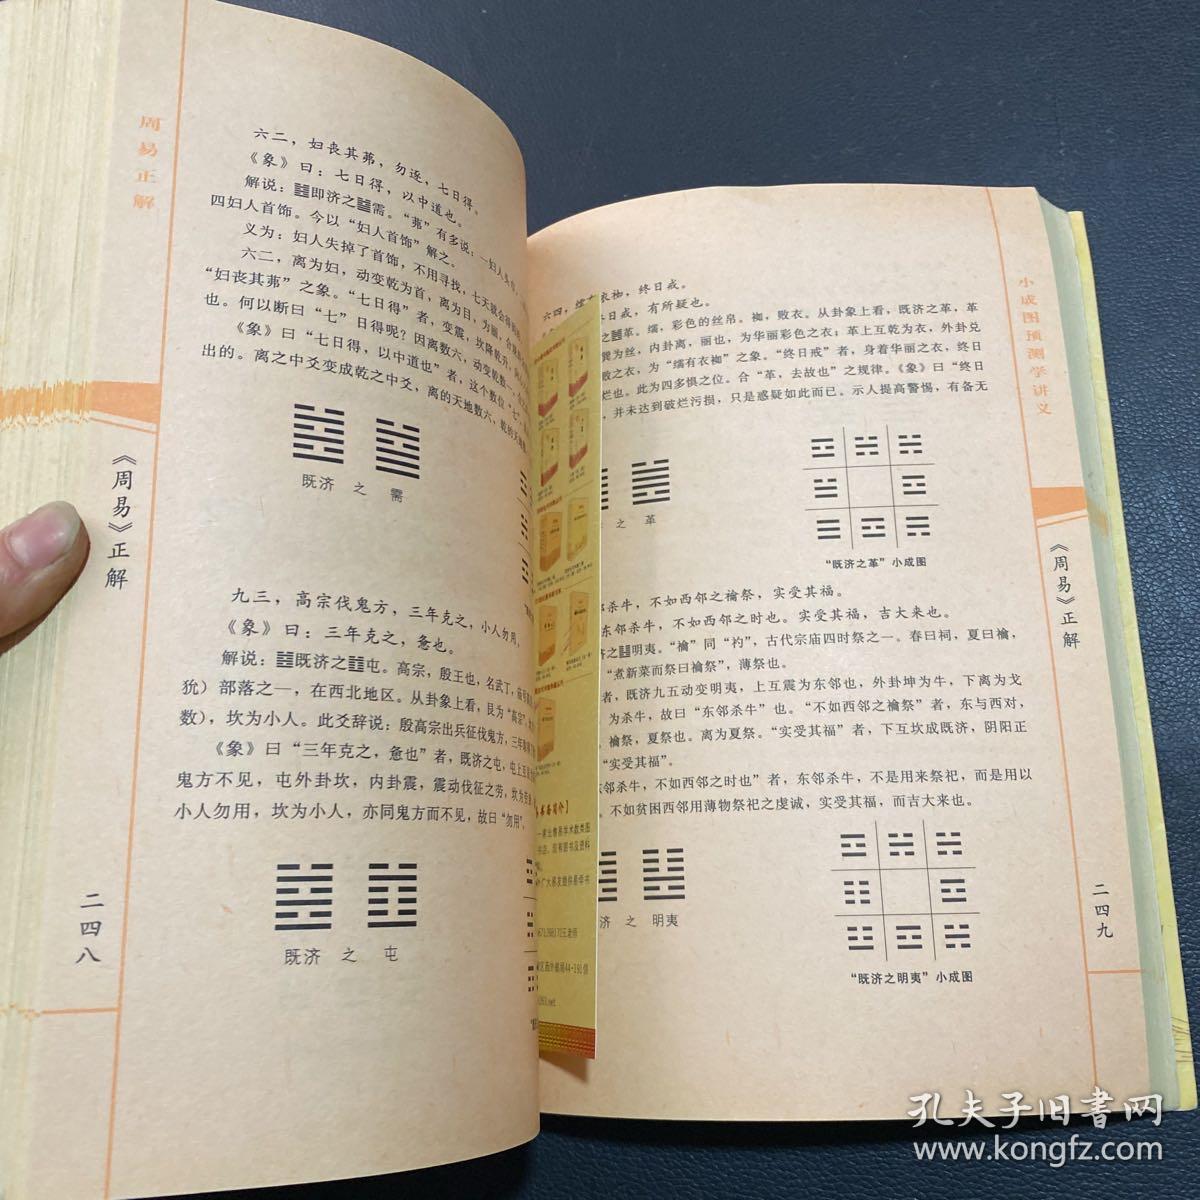 周易正解
六二，妇丧其茀，勿逐，七日得。
《象》曰：七日得，以中道也。
解说：䷾即济之䷄需。“茀”有多说：一妇人头
四妇人首饰。今以“妇人首饰”解之。
义为：妇人失掉了首饰，不用寻找，七天就会得到
六二，离为妇，动变乾为首，离为目，为丽，合
“妇丧其茀”之象。“七日得”者，变震，坎降乾升，
也。何以断曰“七”日得呢？因离数六，动变乾数一，合
《象》曰“七日得，以中道也”者，这个数位“七”，
出的。离之中爻变成乾之中爻，离的天地数六，乾的天地数
既济 之 需
九三，高宗伐鬼方，三年克之，小人勿用，
《象》曰：三年克之，惫也。
解说：䷾既济之䷂屯。高宗，殷王也，名武丁，庙号
狁）部落之一，在西北地区。从卦象上看，艮为“高宗”，
数），坎为小人。此爻辞说：殷高宗出兵征伐鬼方，三年
《象》曰“三年克之，惫也”者，既济之屯，屯上互
鬼方不见，屯外卦坎，内卦震，震动伐征之劳，坎为劳
小人勿用，坎为小人，亦同鬼方而不见，故曰“勿用”。
既济 之 屯
《周易》正解
二四八
衣袽，终日戒。
终日戒，有所疑也。
之䷰革。繻，彩色的丝帛。袽，败衣。从卦象上看，既济之革，革
巽为丝，内卦离，丽也，为华丽彩色之衣；革上互乾为衣，外卦兑
败之衣，为“繻有衣袽”之象。“终日戒”者，身着华丽之衣，终日
烂也。此为四多惧之位。合“革，去故也”之规律。《象》曰“终日
，并未达到破烂污损，只是惑疑如此而已。示人提高警惕，有备无
之 革
“既济之革”小成图
邻杀牛，不如西邻之禴祭，实受其福。
东邻杀牛，不如西邻之时也。实受其福，吉大来也。
济之䷣明夷。“禴”同“礿”，古代宗庙四时祭之一。春曰祠，夏曰禴，
“煮新菜而祭曰禴祭”，薄祭也。
者，既济九五动变明夷，上互震为东邻也，外卦坤为牛，下离为戈
，为杀牛，故曰“东邻杀牛”也。“不如西邻之禴祭”者，东与西对，
，禴祭，夏祭也。离为夏祭。“实受其福”者，下互坎成既济，阴阳正
“实受其福”。
东邻杀牛，不如西邻之时也”者，东邻杀牛，不是用来祭祀，而是用以
。不如贫困西邻用薄物祭祀之虔诚，实受其福，而吉大来也。
济 之 明夷
“既济之明夷”小成图
小成图预测学讲义
《周易》正解
二四九
书斋简介】
广大易友提供易学书
孔夫子旧书网
www.kongfz.com